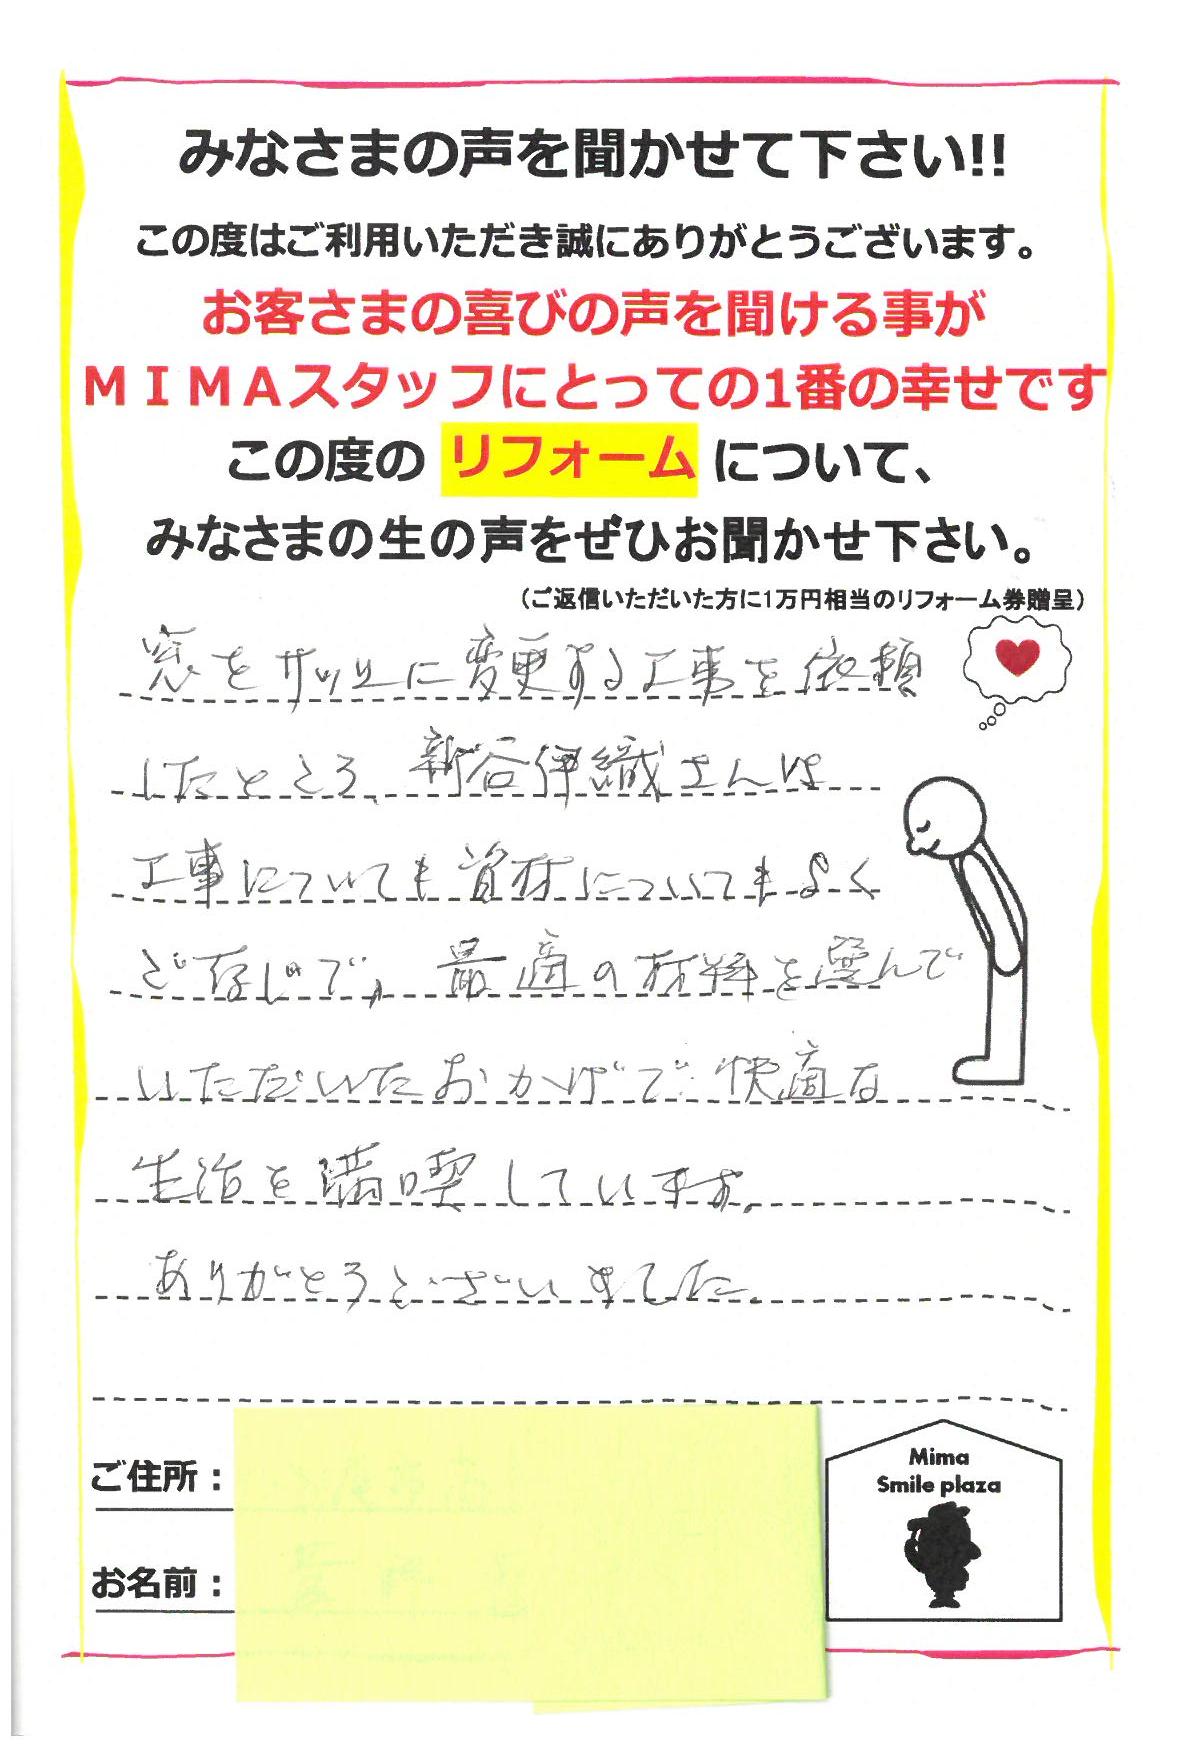 みなさまの声を聞かせて下さい!!
この度はご利用いただき誠にありがとうございます。
お客さまの喜びの声を聞ける事が
ＭＩＭＡスタッフにとっての1番の幸せです
この度の リフォーム について、
みなさまの生の声をぜひお聞かせ下さい。
（ご返信いただいた方に1万円相当のリフォーム券贈呈）
窓をサッシに変更する工事を依頼
したところ、新谷伊織さんは
工事についても資材についてもよく
ご存じで、最適の材料を選んで
いただいたおかげで快適な
生活を満喫しています。
ありがとうございました。
ご住所：
お名前：
Mima
Smile plaza